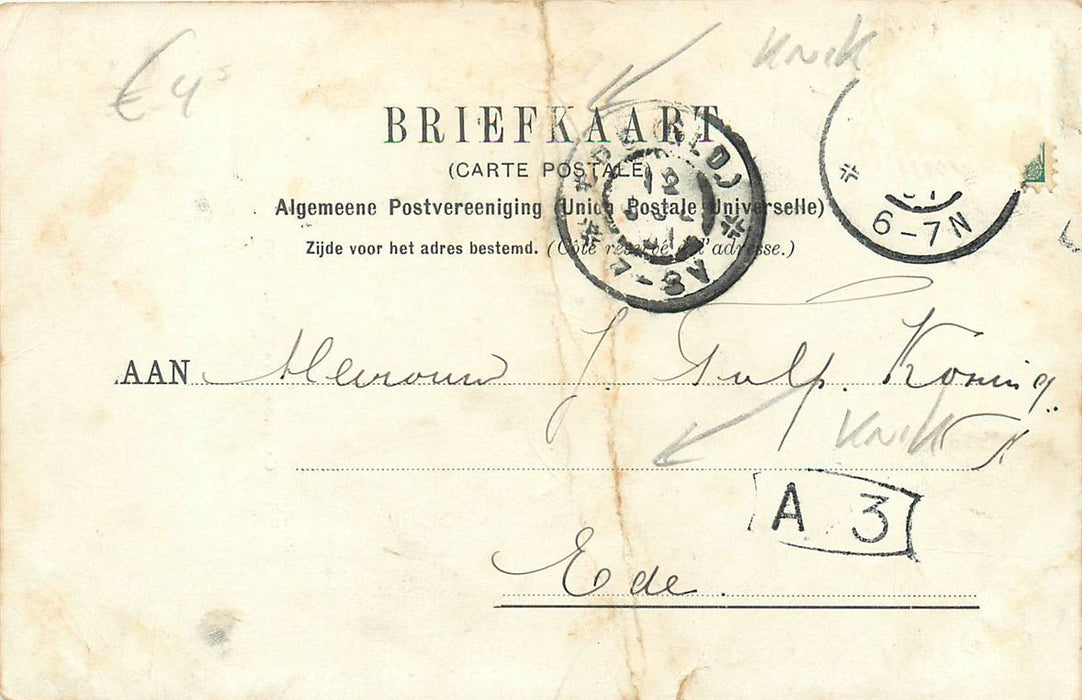 € 4⁵
knik
BRIEFKAART
(CARTE POSTALE)
Algemeene Postvereeniging (Union Postale Universelle)
Zijde voor het adres bestemd. (Côté réservé à l'adresse.)
(GLD)
12
JUL
01
7-8V
01
6-7N
AAN Mevrouw J. Tulp. Koning
knik
A 3
Ede.